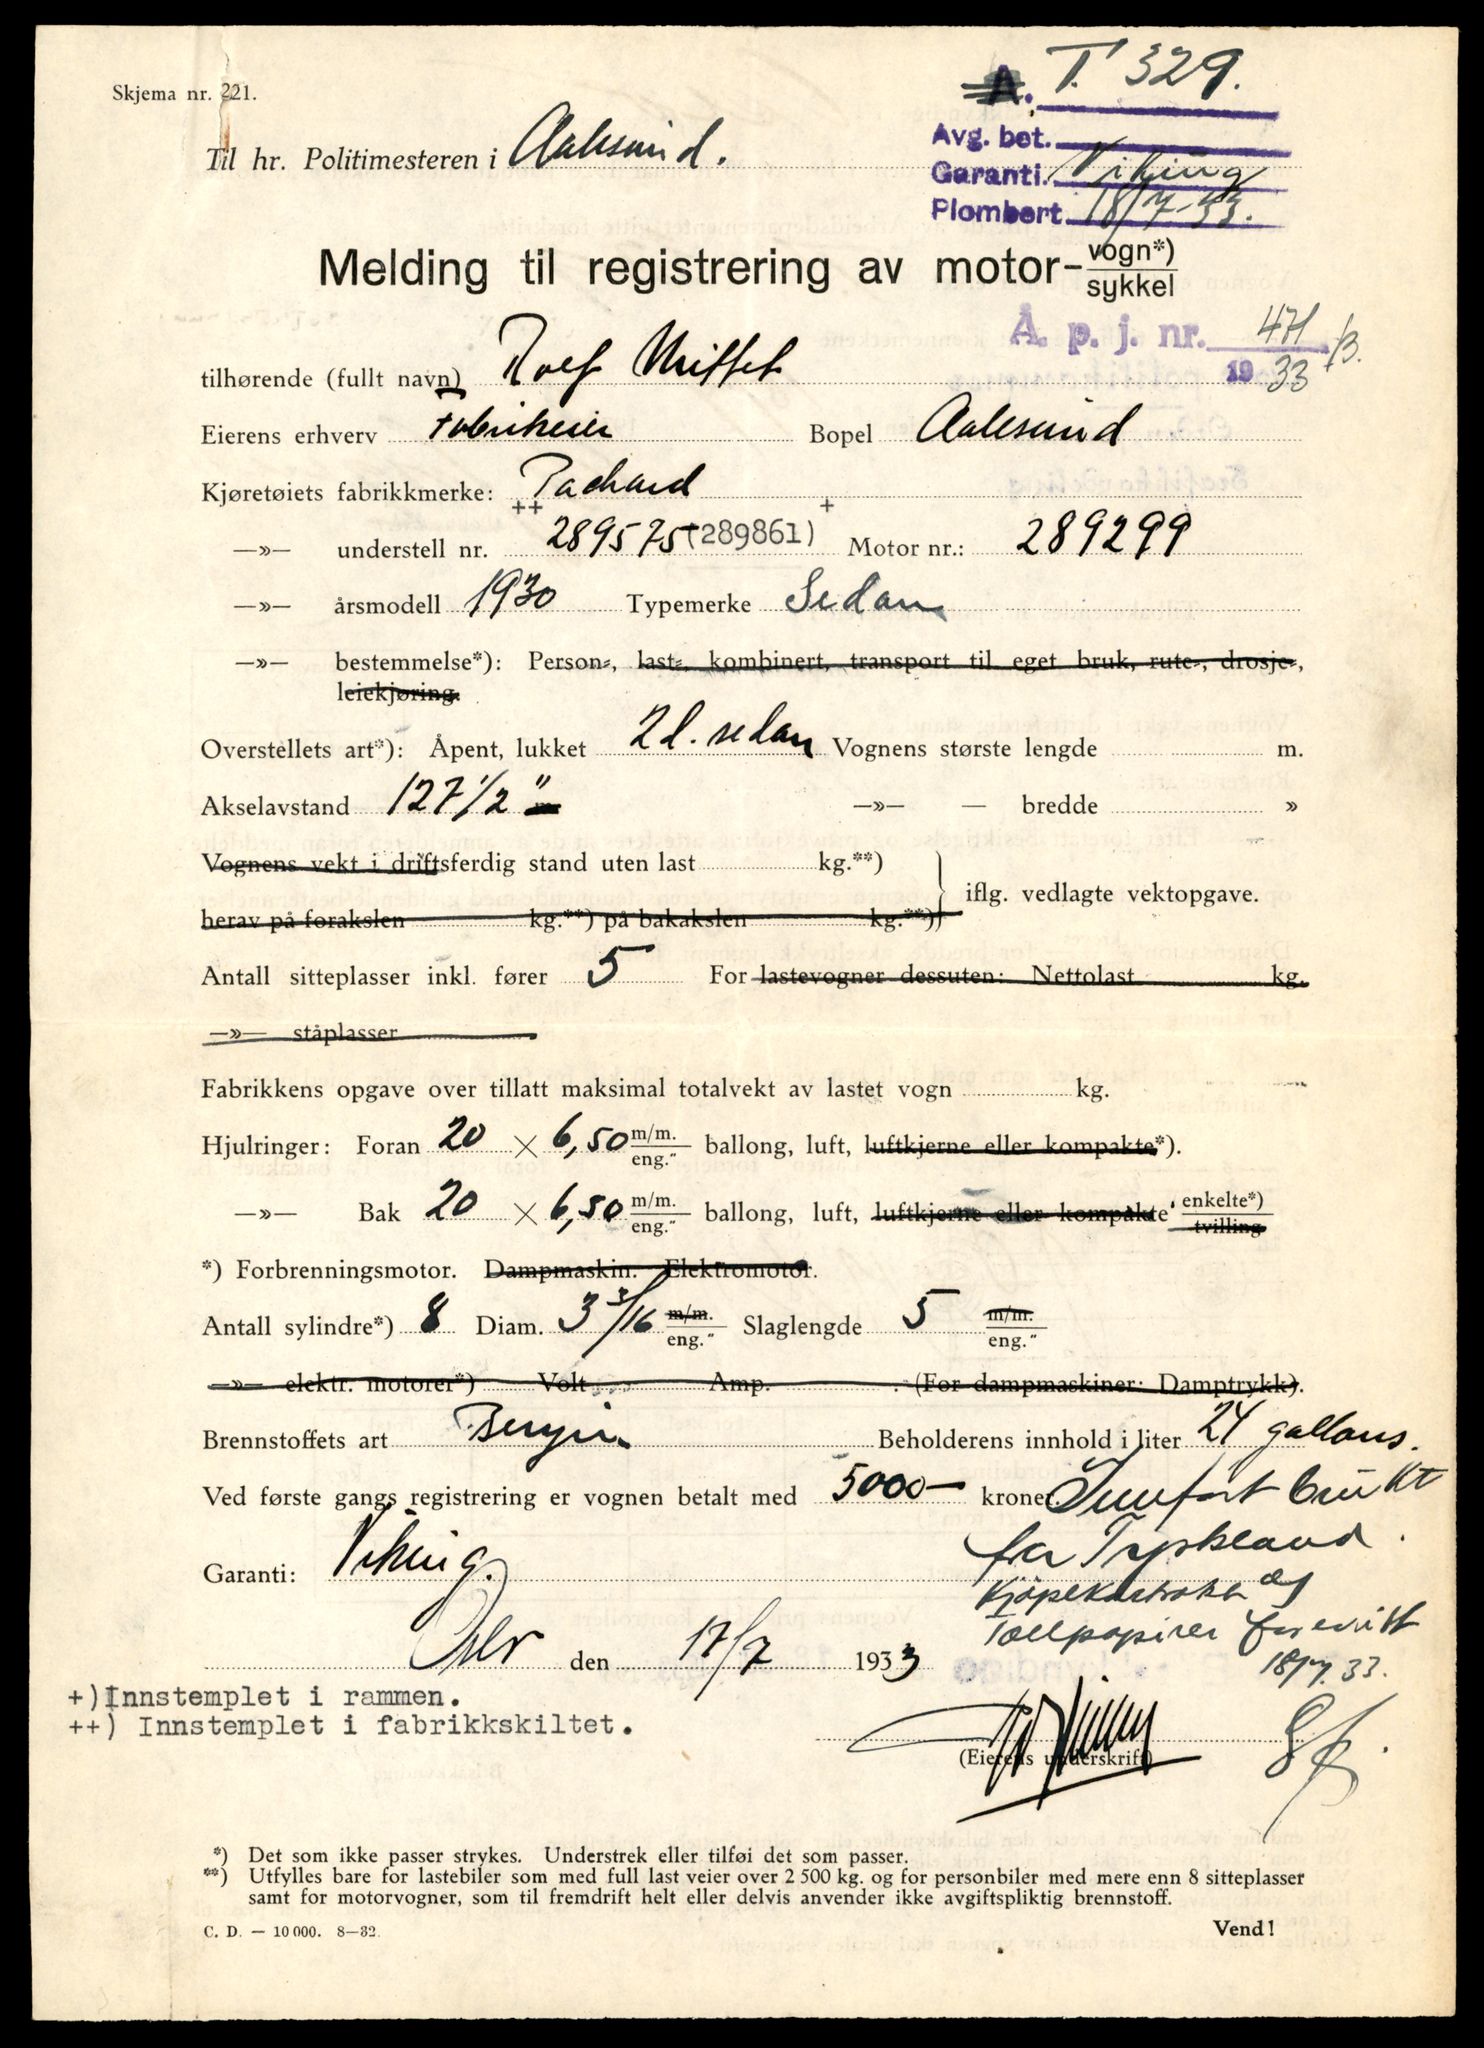 Skjema nr. 221.
A. T. 329.
Avg. bet.
Garanti. Viking
Plombert. 18/7-33.
Til hr. Politimesteren i Aalesund.
Melding til registrering av motor- vogn*) / sykkel
Å. p. j. nr. 471 / 1933
tilhørende (fullt navn) Rolf
Eierens erhverv Fabrikeier Bopel Aalesund
Kjøretøiets fabrikkmerke: Packard
++ +
—»— understell nr. 289575 (289861) Motor nr.: 289299
—»— årsmodell 1930 Typemerke Sedan
—»— bestemmelse*): Person-, last-, kombinert, transport til eget bruk, rute-, drosje-,
leiekjøring.
Overstellets art*): Åpent, lukket 2 d. sedan Vognens største lengde m.
Akselavstand 127 1/2 " —»— — bredde »
Vognens vekt i driftsferdig stand uten last kg.**)
iflg. vedlagte vektopgave.
herav på forakslen kg.**) på bakakslen kg.**)
Antall sitteplasser inkl. fører 5 For lastevogner dessuten: Nettolast kg.
—»— ståplasser
Fabrikkens opgave over tillatt maksimal totalvekt av lastet vogn kg.
Hjulringer: Foran 20 × 6,50 m/m. / eng." ballong, luft, luftkjerne eller kompakte*).
—»— Bak 20 × 6,50 m/m. / eng." ballong, luft, luftkjerne eller kompakte enkelte*) / tvilling
*) Forbrenningsmotor. Dampmaskin. Elektromotor.
Antall sylindre*) 8 Diam. 3 3/16 m/m. / eng." Slaglengde 5 m/m. / eng."
—»— elektr. motorer*) Volt Amp. . (For dampmaskiner: Damptrykk).
Brennstoffets art Benzin Beholderens innhold i liter 24 gallons.
Ved første gangs registrering er vognen betalt med 5000- kroner. Innført brukt
fra Tyskland.
Garanti: Viking.
Kjøpekontrakt og
Tollpapirer forevist
18/7. 33.
Oslo den 17/7 1933
+)Innstemplet i rammen.
++) Innstemplet i fabrikkskiltet.
(Eierens underskrift)
*) Det som ikke passer strykes. Understrek eller tilføi det som passer.
**) Utfylles bare for lastebiler som med full last veier over 2 500 kg. og for personbiler med mere enn 8 sitteplasser
samt for motorvogner, som til fremdrift helt eller delvis anvender ikke avgiftspliktig brennstoff.
C. D. — 10 000. 8—32.
Vend!